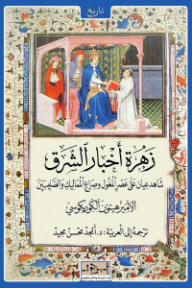 تاريخ
زهرة أخبار الشرق
شاهد عيان على عصر المغول وصراع المماليك والصليبيين
الأمير هيتوم الكوريكوسي
ترجمه إلى العربية: د. أمجد محسن مجيد